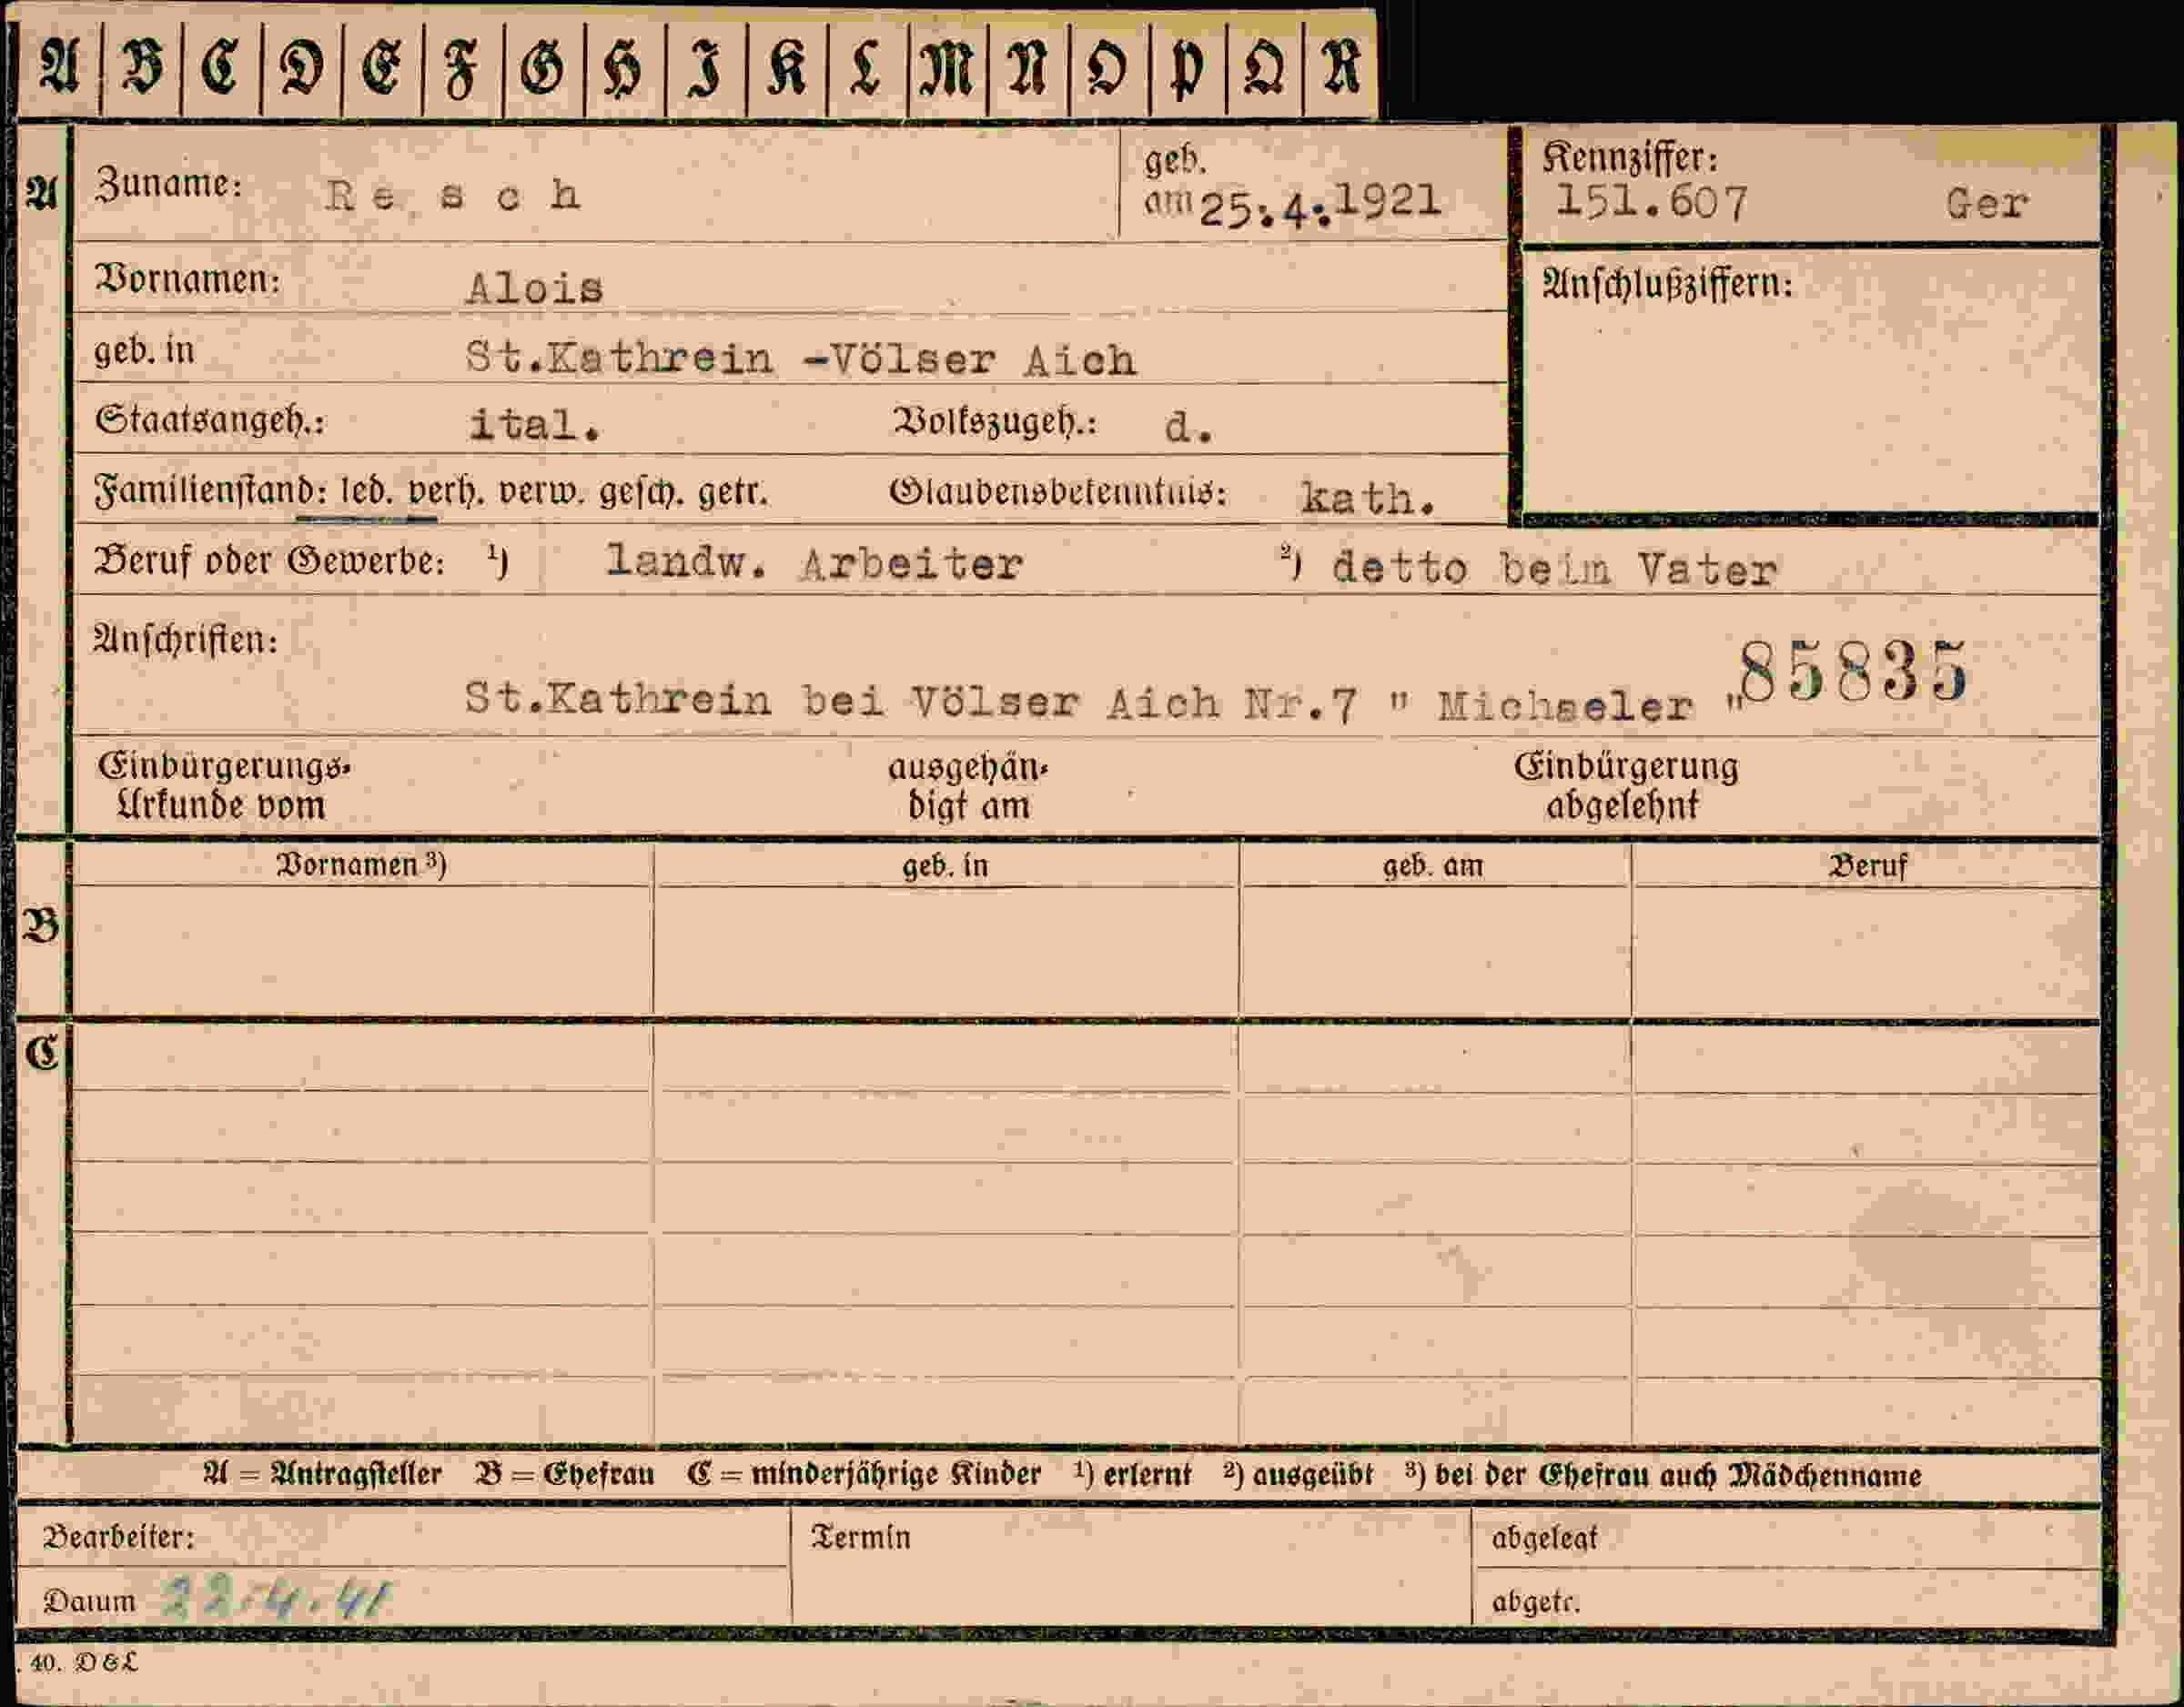 A B C D E F G H I K L M N O P Q R
A Zuname: Resch geb. am 25.4.1921 Kennziffer: 151.607 Ger
Vornamen: Alois Anschlußziffern:
geb. in St.Kathrein -Völser Aich
Staatsangeh.: ital. Volkszugeh.: d.
Familienstand: led. verh. verw. gesch. getr. Glaubensbekenntnis: kath.
Beruf oder Gewerbe: ¹) landw. Arbeiter ²) detto beim Vater
Anschriften:
85835
St.Kathrein bei Völser Aich Nr.7 " Michaeler "
Einbürgerungs- ausgehän- Einbürgerung
Urkunde vom digt am abgelehnt
Vornamen ³) geb. in geb. am Beruf
B
C
A = Antragsteller B = Ehefrau C = minderjährige Kinder ¹) erlernt ²) ausgeübt ³) bei der Ehefrau auch Mädchenname
Bearbeiter: Termin abgelegt
Datum 22.4.41 abgetr.
. 40. D & L